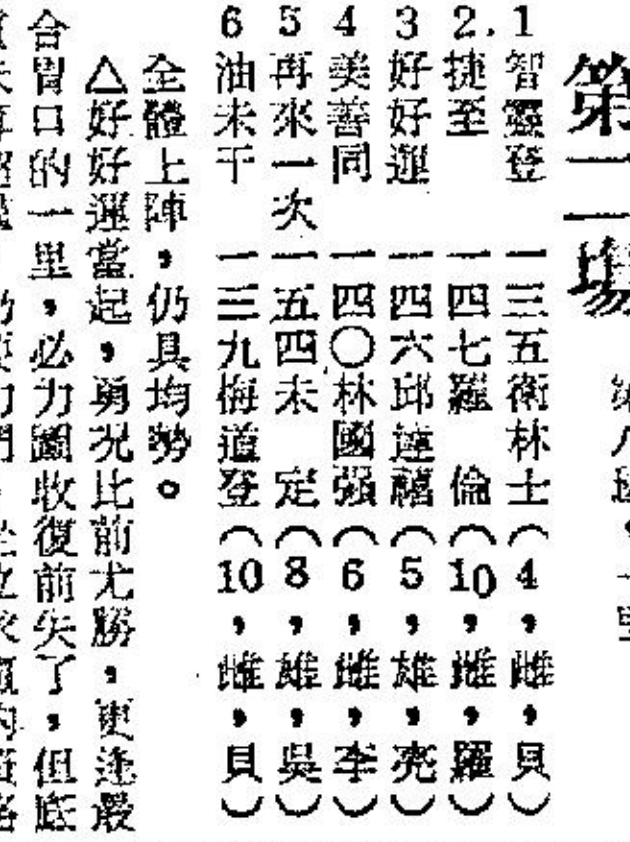 第二場
八 ，一里
1 智靈登 一三五衛林士（4，雌，貝）
2. 捷至 一四七羅 倫（10，雌，羅）
3 好好運 一四六邱達禧（5，雄，亮）
4 美善同 一四〇林國强（6，雌，李）
5 再來一次 一五四未 定（8，雄，吳）
6 油未干 一三九梅道登（10，雌，貝）
全體上陣，仍具均勢。
△好好運當起，勇況比前尤勝，更逢最
合胃口的一里，必力圖收復前失了，但底